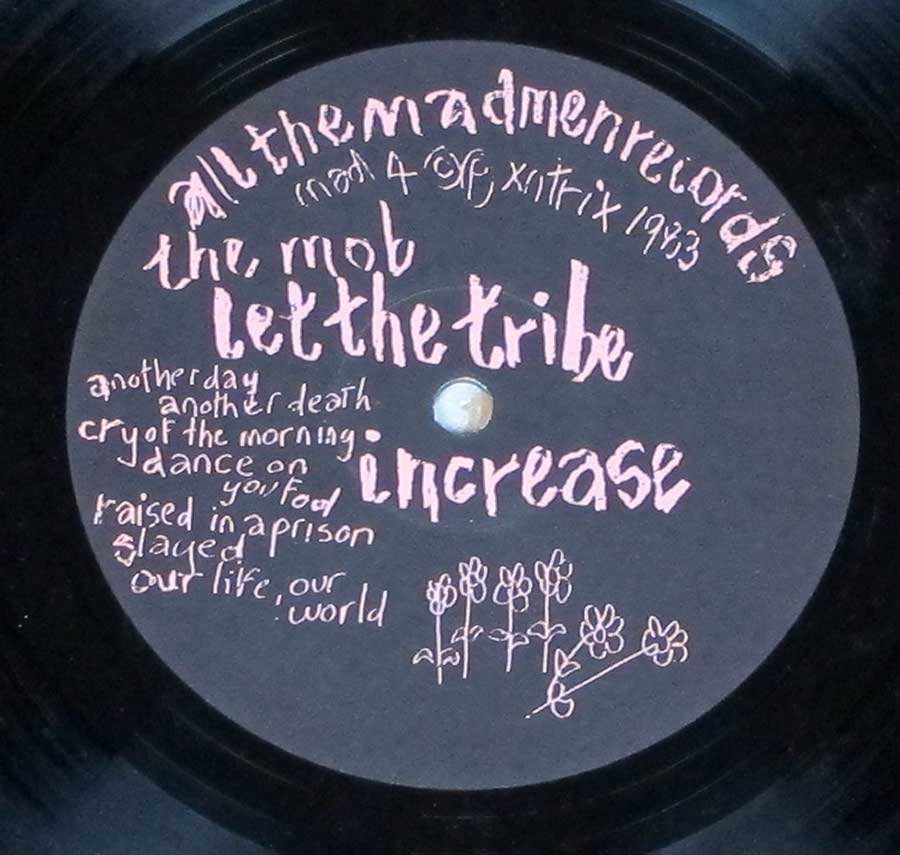 all the madmen records
mad 4 ©℗ xntrix 1983
the mob
let the tribe
increase
another day
another death
cry of the morning
dance on
you fool
raised in a prison
slayed
our life, our
world